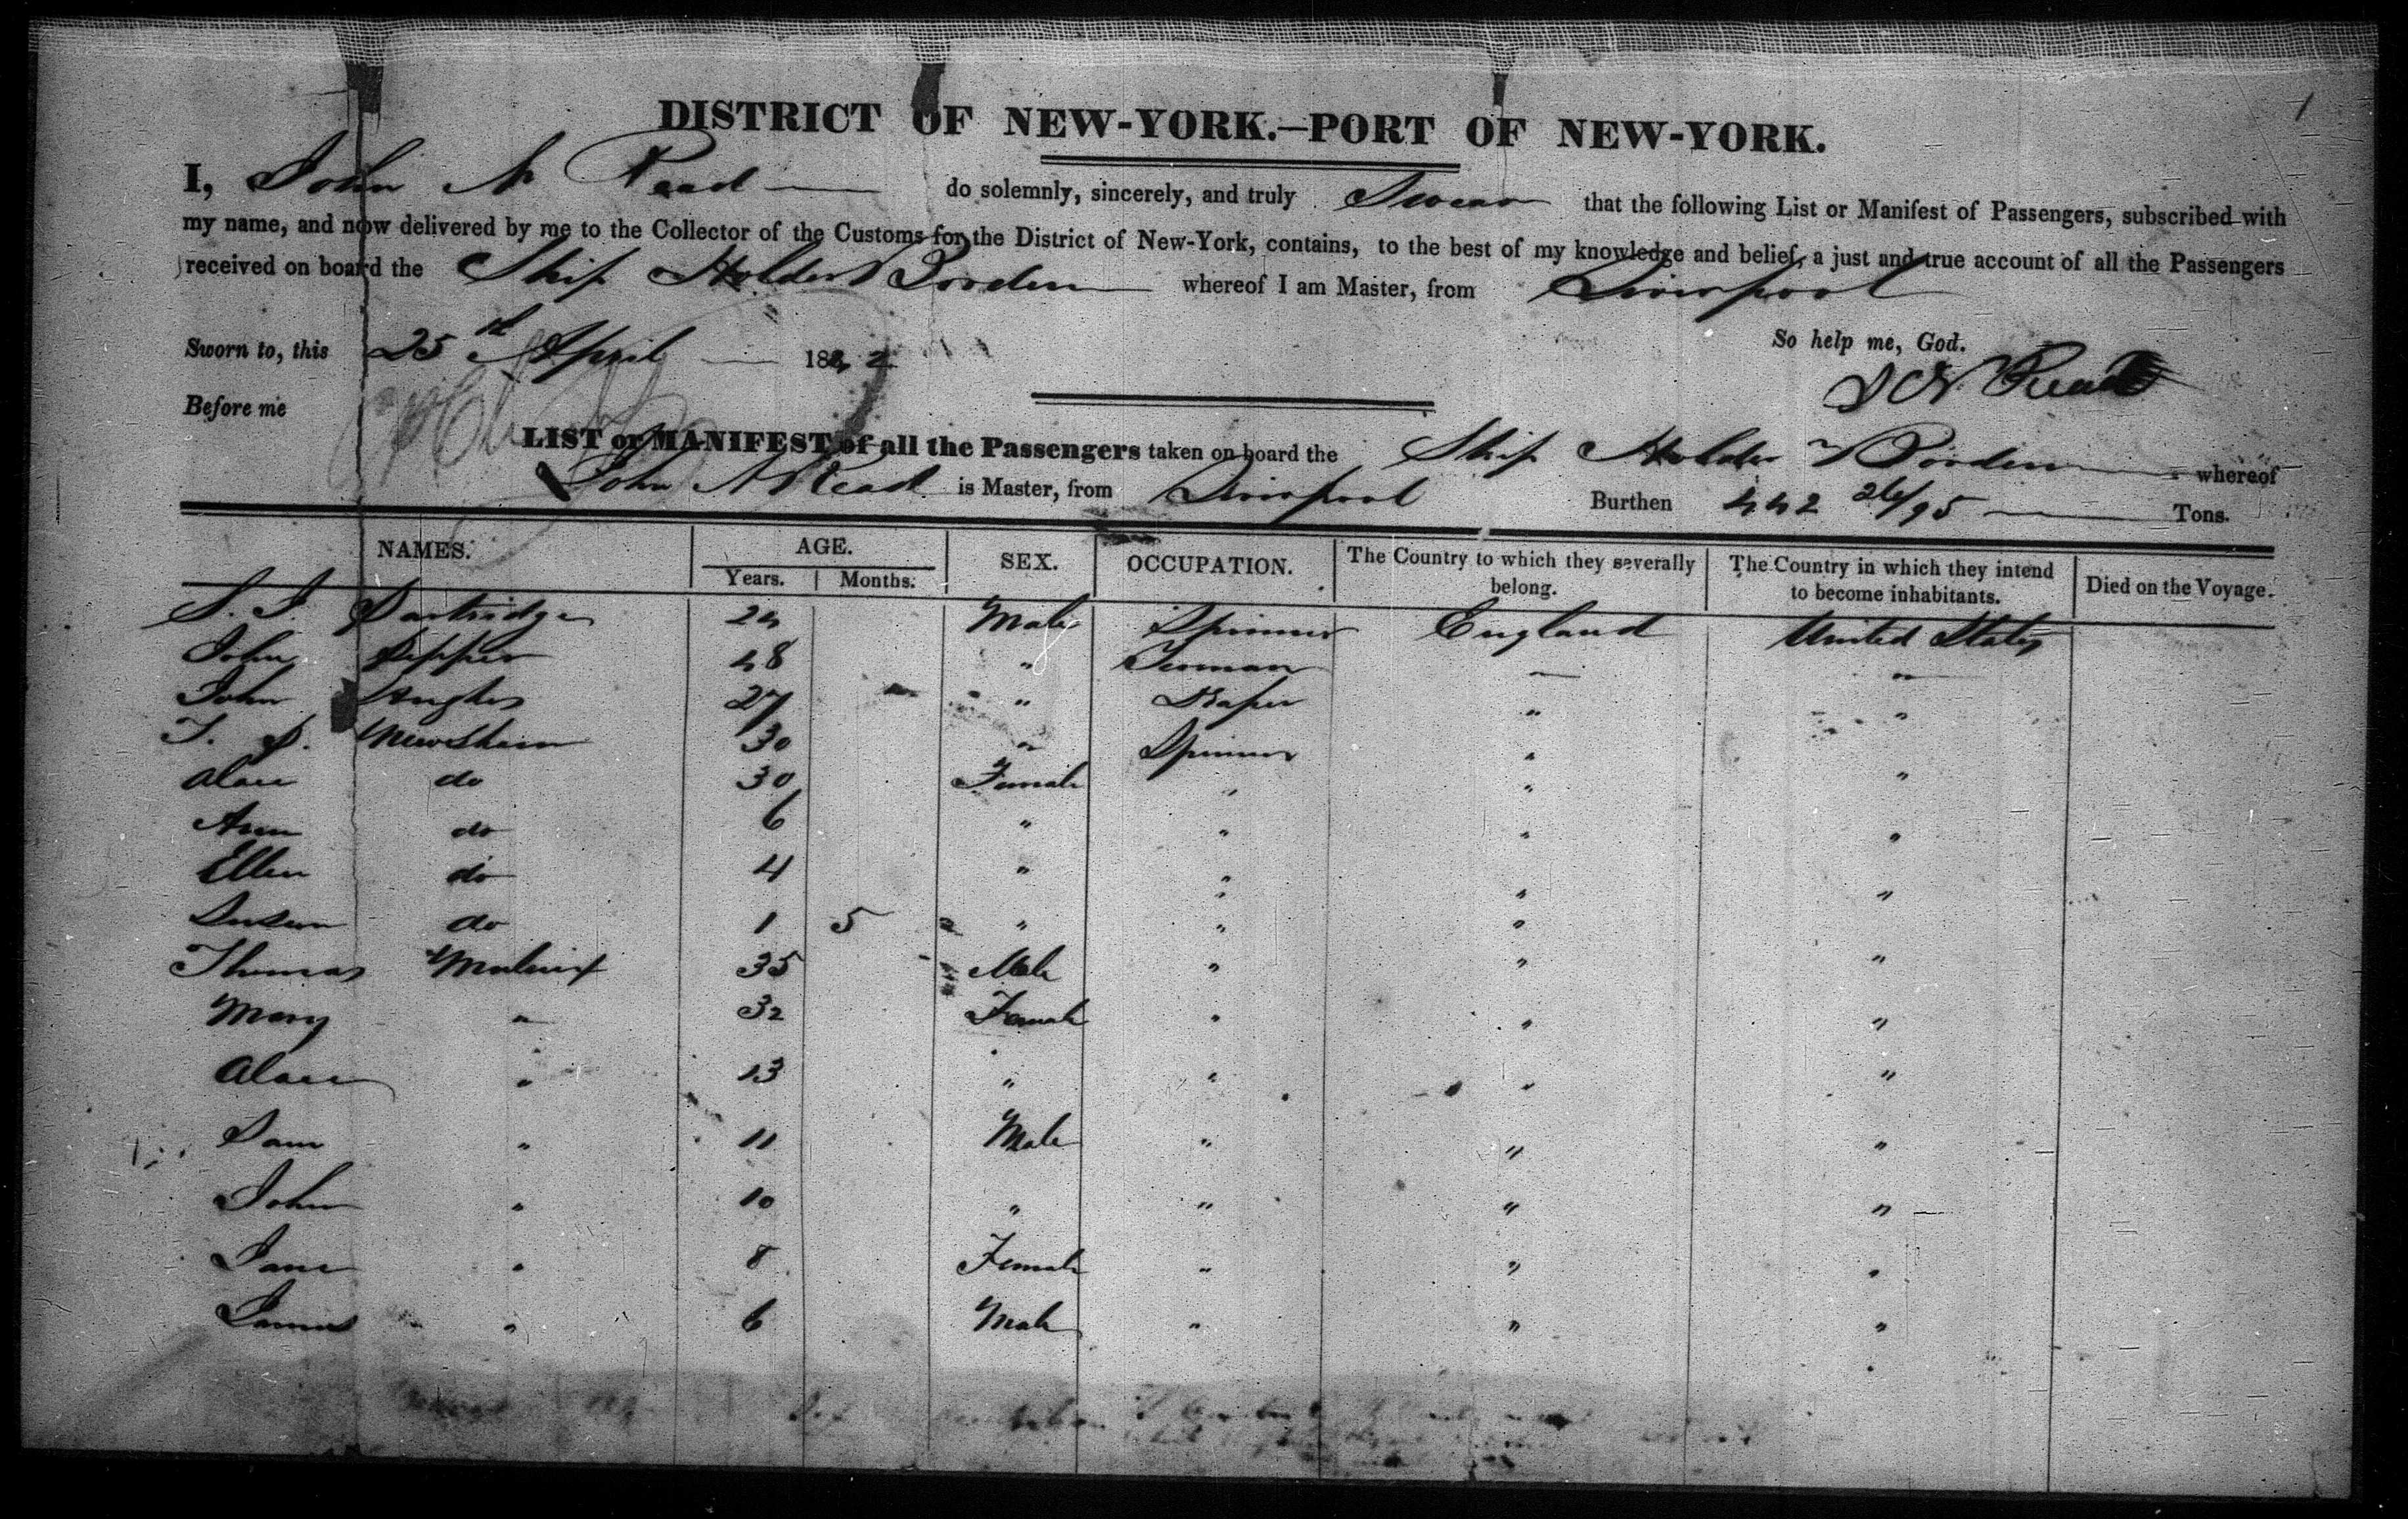 1
DISTRICT OF NEW-YORK.—PORT OF NEW-YORK.
I, John N Read do solemnly, sincerely, and truly Swear that the following List or Manifest of Passengers, subscribed with
my name, and now delivered by me to the Collector of the Customs for the District of New-York, contains, to the best of my knowledge and belief, a just and true account of all the Passengers
received on board the Ship Holder Borden whereof I am Master, from Liverpool
So help me, God.
Sworn to, this 25th April 1842
Read
Before me
LIST or MANIFEST of all the Passengers taken on board the Ship Holder Borden whereof
John N Read is Master, from Liverpool Burthen 442 26/95 Tons.
NAMES. AGE. SEX. OCCUPATION. The Country to which they severally belong. The Country in which they intend to become inhabitants. Died on the Voyage.
Years. Months.
S. J. Partridge 24 Male Spinner England United States
John Pepper 48 " — "
John Hughes 27 " Draper " "
T. P. Newsham 30 " Spinner "
Alace do 30 Female " " "
Ann do 6 " " " "
Ellen do 4 " " " "
Susan do 1 5 " " " "
Thomas Mulnix 35 Male " " "
Mary " 32 Female " " "
Alace " 13 " " " "
Sam " 11 Male " " "
John " 10 " " " "
Jane " 8 Female " " "
James " 6 Male " " "